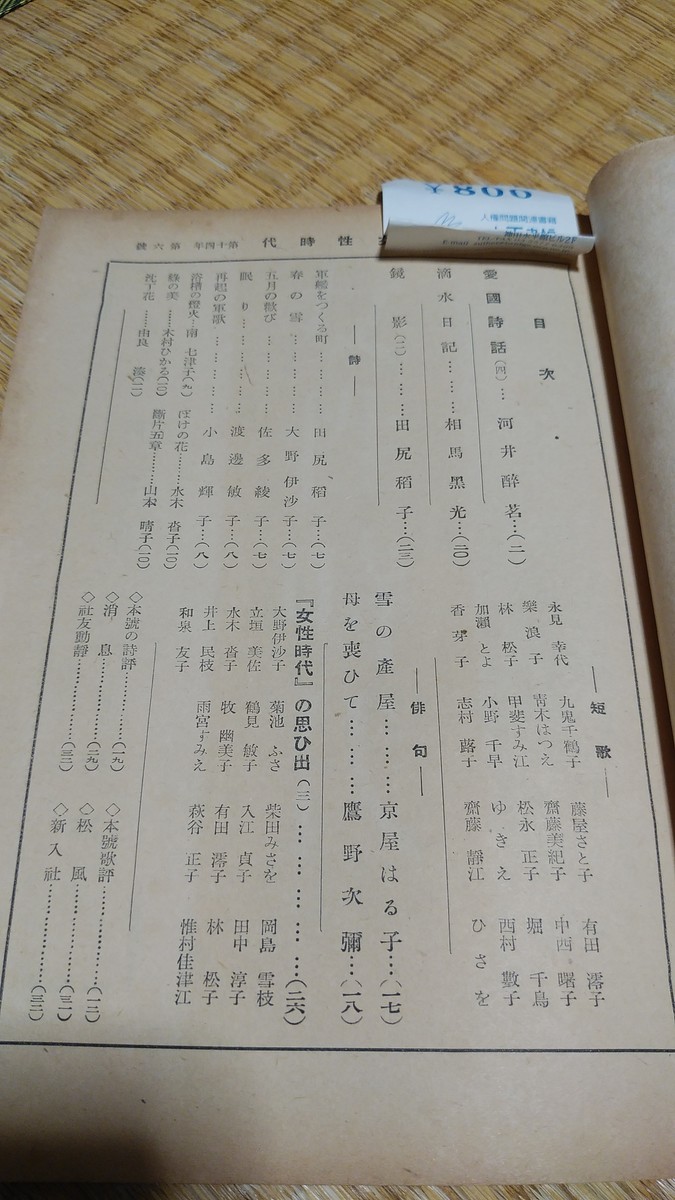 ¥800
人権問題関連書籍
性時代 第十四年 第六號
目次
愛國詩話(四)…河井醉茗…(二)
滴水日記………相馬黑光…(二〇)
鏡影(二)………田尻稻子…(二三)
―詩―
軍艦をつくる町…………田尻稻子…(七)
春の雪…………大野伊沙子…(七)
五月の歡び…………佐多綾子…(七)
眠り…………渡邊敏子…(八)
再起の軍歌…………小島輝子…(八)
浴槽の燈火…南七津子(九)
ぼけの花………水木沓子(一〇)
蘇の美……木村ひかる(一〇)
斷片五章………山本晴子(一〇)
沈丁花………由良湊(一一)
―短歌―
永見幸代 九鬼千鶴子 藤屋さと子 有田澪子
樂浪子 靑木はつえ 齋藤美紀子 中西曙子
林松子 甲斐すみ江 松永正子 堀千鳥
加瀨とよ 小野千早 ゆきえ 西村數子
香芽子 志村蕗子 齋藤靜江 ひさを
―俳句―
雪の產屋………京屋はる子…(一七)
母を喪ひて………鷹野次彌…(一八)
『女性時代』の思ひ出(三)……………(二六)
大野伊沙子 菊池ふさ 柴田みさを 岡島雪枝
立垣美佐 鶴見敏子 入江貞子 田中淳子
水木沓子 牧幽美子 有田澪子 林松子
井上民枝 雨宮すみえ 萩谷正子 惟村佳津江
和泉友子
◇本號の詩評……………(一九)
◇本號歌評……………(一二)
◇消息……………(二九)
◇松風……………(三一)
◇社友動靜……………(三二)
◇新入社……………(三二)